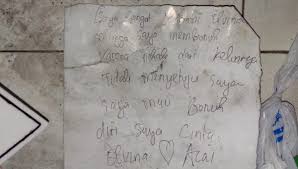 Saya sangat Elvina
saya
Karena dari keluarga
tidak menyetujui saya
saya mau bunuh
diri saya Cinta
Elvina ♡ Azai